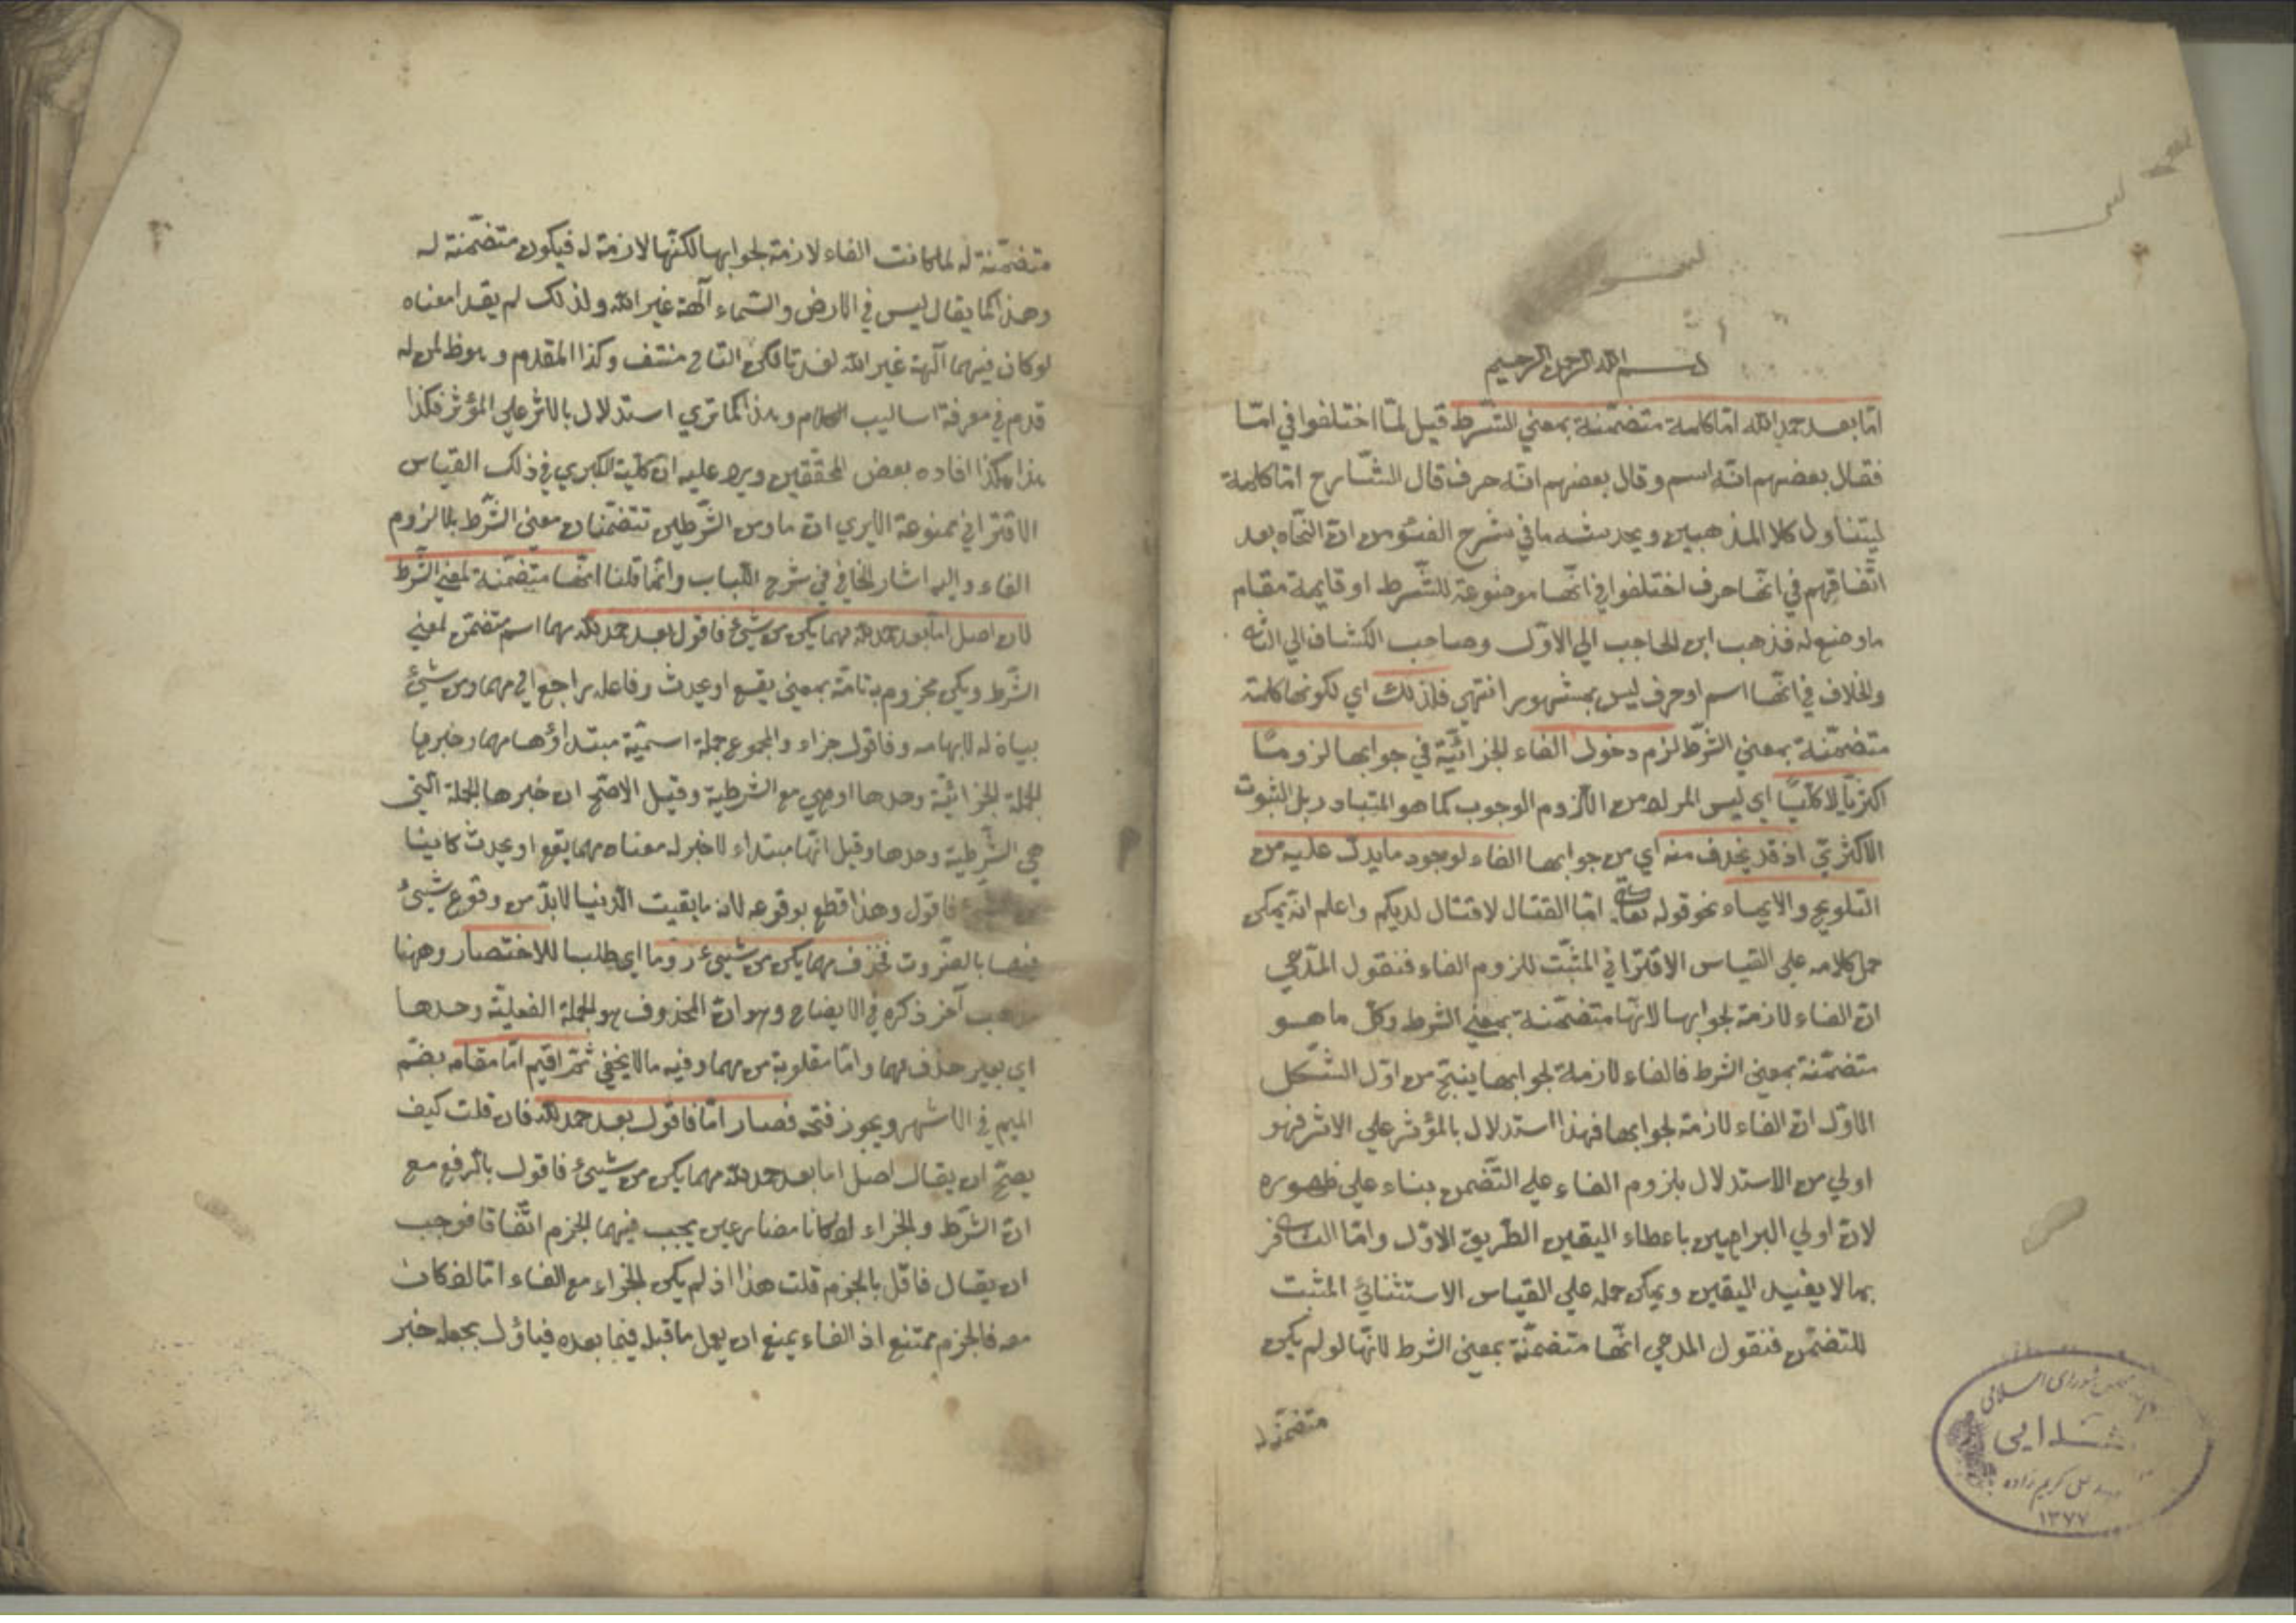 بسم الله الرحمن الرحيم
امّا بعد حمد الله امّا كلمة متضمّنة بمعني الشّرط قيل لمّا اختلفوا في امّا
فقال بعضهم انّه اسم وقال بعضهم انّه حرف قال الشّارح امّا كلمة
ليتناول كلا المذهبين ويخدشه ما في شرح الضوء من انّ النّحاة بعد
اتّفاقهم في انّها حرف اختلفوا في انّها موضوعة للشّرط او قايمة مقام
ما وضع له فذهب ابن الحاجب الي الاوّل وصاحب الكشاف الي الثاني
والخلاف في انّها اسم او حرف ليس بمشهور انتهي فلذلك اي لكونها كلمة
متضمّنة بمعني الشّرط لزم دخول الفاء الجزائيّة في جوابها لزوما
اكثريّا لا كليّا اي ليس المراد من اللّزوم الوجوب كما هو المتبادر بل الثبوت
الاكثريّ اذ قد يحذف منه اي من جوابها الفاء لوجود ما يدلّ عليه من
التلويح والايماء نحو قوله تعالي امّا القتال لا قتال لديكم واعلم انّه يمكن
حمل كلامه علي القياس الاقترانيّ المثبّت للزوم الفاء فنقول المدّعي
انّ الفاء لازمة لجوابها لانّها متضمّنة بمعني الشرط وكلّ ما هو
متضمّنة بمعني الشرط فالفاء لازمة لجوابها ينتج من اوّل الشّكل
الاوّل انّ الفاء لازمة لجوابها فهذا استدلال بالمؤثر علي الاثر فهو
اولي من الاستدلال بلزوم الفاء علي التّضمن بناء علي ظهوره
لانّ اولي البراهين باعطاء اليقين الطّريق الاوّل وامّا الثاني فر
بما لا يفيد اليقين ويمكن حمله علي القياس الاستثنائيّ المثبت
للتضمّن فنقول المدعي انّها متضمّنة بمعني الشرط لانّها لو لم يكن
متضمّنة له
متضمّنة له لما كانت الفاء لازمة لجوابها لكنّها لازمة له فيكون متضمّنة له
وهذا كما يقال ليس في الارض والسّماء آلهة غير الله ولذلك لم يقد امعناه
لو كان فيهما آلهة غير الله لفسدتا لكن التالي منتف وكذا المقدم وهو ظ لمن له
قدم في معرفة اساليب الكلام وهذا كما تري استدلال بالاثر علي المؤثر فكذا
هذا هكذا افاده بعض المحقّقين ويرد عليه انّ كليّة الكبري في ذلك القياس
الاقتراني ممنوعة الا يري انّ ما ومن الشّرطيّن تتضمّنان معني الشّرط بلا لزوم
الفاء واليه اشار الخافي في شرح اللّباب وانّما قلنا انّها متضمّنة لمعني الشّرط
لانّ اصل امّا بعد حمد الله مهما يكن من شيئ فاقول بعد حمد الله مهما اسم متضمّن لمعني
الشّرط ويكن مجزوم به تامّة بمعني يقع او يحدث وفاعله راجع الي مهما ومن شيئ
بيان له لابهامه وفاقول جزاء والمجموع جملة اسميّة مبتداؤها مهما وخبرها
الجملة الجزائيّة وحدها او هي مع الشرطية وقيل الاصحّ ان خبرها الجملة الّتي
هي الشّرطية وحدها وقيل انّها مبتداء لا خبر له معناه مهما يقع او يحدث كاينا
فاقول وهذا قطع بوقوعه لانّ ما بقيت الدّنيا لا بدّ من وقوع شيئ
فيها بالضّروت فحذف مهما يكن من شيئ روما اي طلبا للاختصار وههنا
مذهب آخر ذكره في الايضاح وهو انّ المحذوف هو الجملة الفعليّة وحدها
اي بغير حذف مهما وامّا مقلوبة من مهما وفيه ما لا يخفي ثمّ اقيم امّا مقامه بضمّ
الميم في الاشهر ويجوز فتحه فصار امّا فاقول بعد حمد الله فان قلت كيف
يصحّ ان يقال اصل اما بعد حمد الله مهما يكن من شيئ فاقول بالرفع مع
انّ الشّرط والجزاء اذا كانا مضارعين يجب فيهما الجزم اتّفاقا فوجب
ان يقال فاقل بالجزم قلت هذا اذ لم يكن الجزاء مع الفاء امّا اذا كان
معه فالجزم ممتنع اذ الفاء يمنع ان يعمل ما قبله فيما بعده فياؤل بجعله خبر
شورای اسلامی
اهدایی
کریم زاده
۱۳۷۷